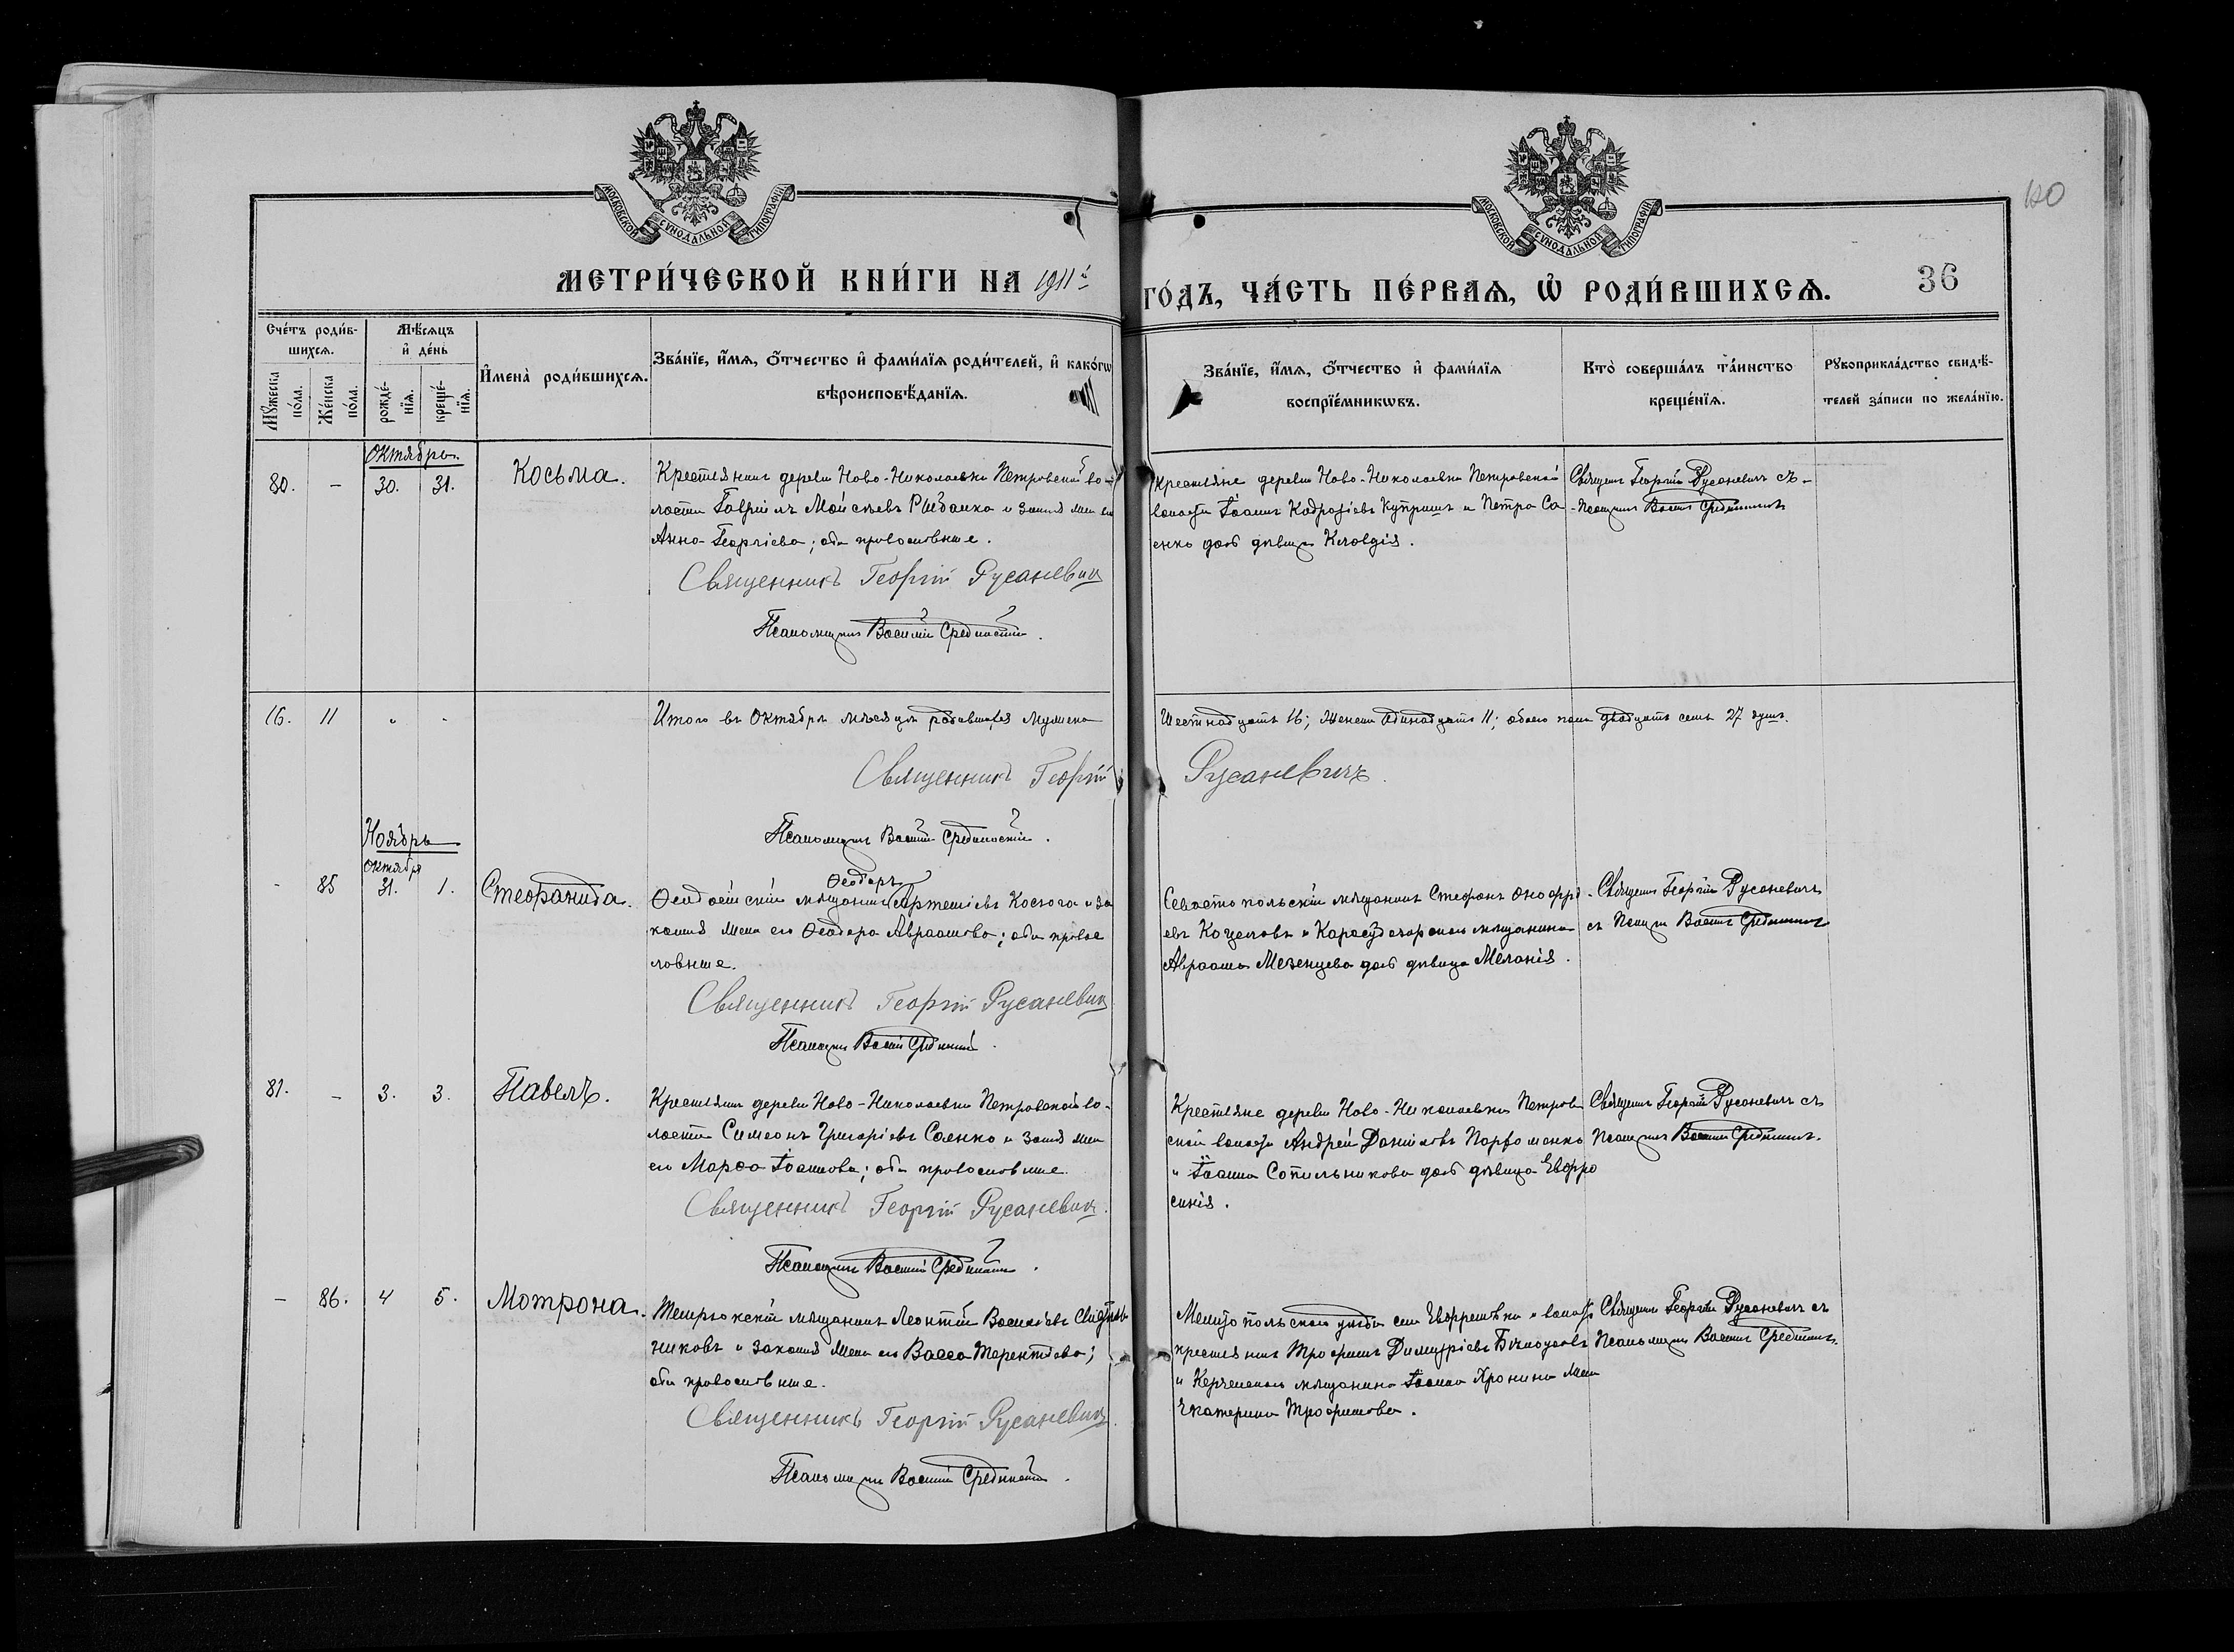 МОСКОВСКОЙ СѴНОДАЛЬНОЙ ТИПОГРАФІИ
МОСКОВСКОЙ СѴНОДАЛЬНОЙ ТИПОГРАФІИ
120
МЕТРИ́ЧЕСКОЙ КНИ́ГИ НА 1911й
ГО́ДЪ, ЧА́СТЬ ПЕ́РВАѦ, Ѡ҆ РОДИ́ВШИХСѦ.
36
Сче́тъ роди́в-
шихсѧ.
Мꙋ́жеска по́ла.
Же́нска по́ла.
Мѣ́сѧцъ
и҆ де́нь
рожде́-нїѧ.
креще́-нїѧ.
И҆мена̀ роди́вшихсѧ.
Зва́нїе, и҆́мѧ, ѻ҆́тчество и҆ фами́лїѧ роди́телей, и҆ како́гѡ
вѣроисповѣ́данїѧ.
Зва́нїе, и҆́мѧ, ѻ҆́тчество и҆ фами́лїѧ
воспрїе́мникѡвъ.
Кто̀ соверша́лъ та́инство
креще́нїѧ.
Рꙋкоприкла́дство свидѣ́-
телей за́писи по жела́нїю.
Октябрь.
80. - 30. 31. Косьма.
Крестьянинъ деревни Ново-Николаевки Петровской во-
лости Гавріилъ Моисѣевъ Рыбалка и законая жена его
Анна Георгіева; оба православные.
Священникъ Георгій Русаневичъ
Псаломщикъ Василій Срединскій.
Крестьяне деревни Ново-Николаевки Петровской
волости Іоаннъ Купришъ и Петра Са
енко дочь дѣвица Клавдія.
Священ Георгій Русаневичъ съ
Псаломщик Васил Срединскимъ
16. 11 " "
Итого въ Октябрѣ мѣсяцѣ родившихся мужска
Шестнадцать 16; женска одинадцать 11; обоего пола двадцать семь 27 душъ.
Священникъ Георгій
Русаневичъ.
Псаломщикъ Василій Срединскій.
Ноябрь
Октября
- 85 31. 1. Стефанида.
Ѳеодоръ
Ѳеодосійскій мѣщанинъ Артеміевъ Косюга и за
конная жена его Ѳеодора Авраамова; оба правос
лавные.
Священникъ Георгій Русаневичъ
Псаломщикъ Василій Срединскій.
Севастопольскій мѣщанинъ Стефанъ Онофрі
евъ Коцеловъ и Карасубазарскаго мѣщанина
Авраама Мезенцева дочь дѣвица Меланія.
Священ Георгій Русаневичъ
съ Псаломщ Васил Срединскимъ
81. - 3. 3. Павелъ.
Крестьянин деревни Ново-Николаевки Петровской во-
лости Симеонъ Григоріевъ Саенко и закон жена
его Марѳа Іоаннова; оба православные.
Священникъ Георгій Русаневичъ.
Псаломщикъ Василій Срединскій.
Крестьяне деревни Ново-Николаевки Петров
ской волости Андрей Даніиловъ Парфоменко
и Іоанна Сопильникова дочь дѣвица Евфро
синія.
Священ Георгій Русаневичъ съ
Псаломщик Васил Срединскимъ.
- 86. 4 5. Мотрона.
Темрюкскій мѣщанинъ Леонтій Васильевъ
никовъ и законная жена его Васса Терентіева;
оба православные.
Священникъ Георгій Русаневичъ.
Псаломщикъ Василій Срединскій.
Мелитопольскаго уѣзда села и волости
крестьянинъ Трофимъ Димитріевъ Бѣлоусовъ
и Керченскаго мѣщанина Іоанна Хронина жена
Екатерина Трофимова.
Священ Георгій Русаневичъ съ
Псаломщик Васил Срединскимъ.